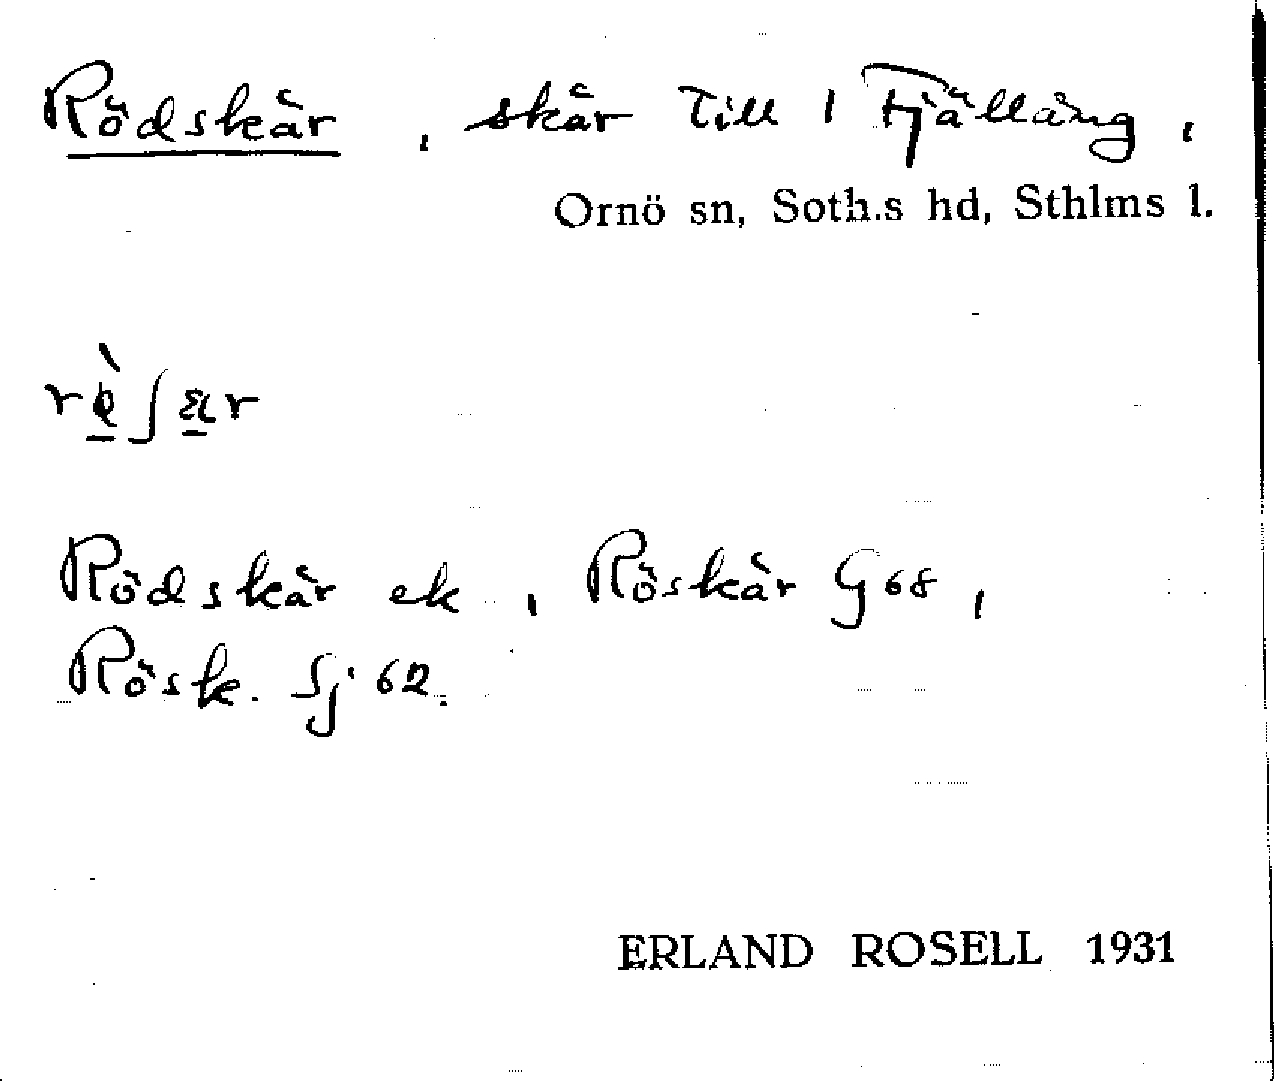 Rödskär, skär till 1 Fjällång,
Ornö sn, Soth.s hd, Sthlms l.
Rödskär ek, Röskär G 68,
Rösk. Sj 62.
ERLAND ROSELL 1931